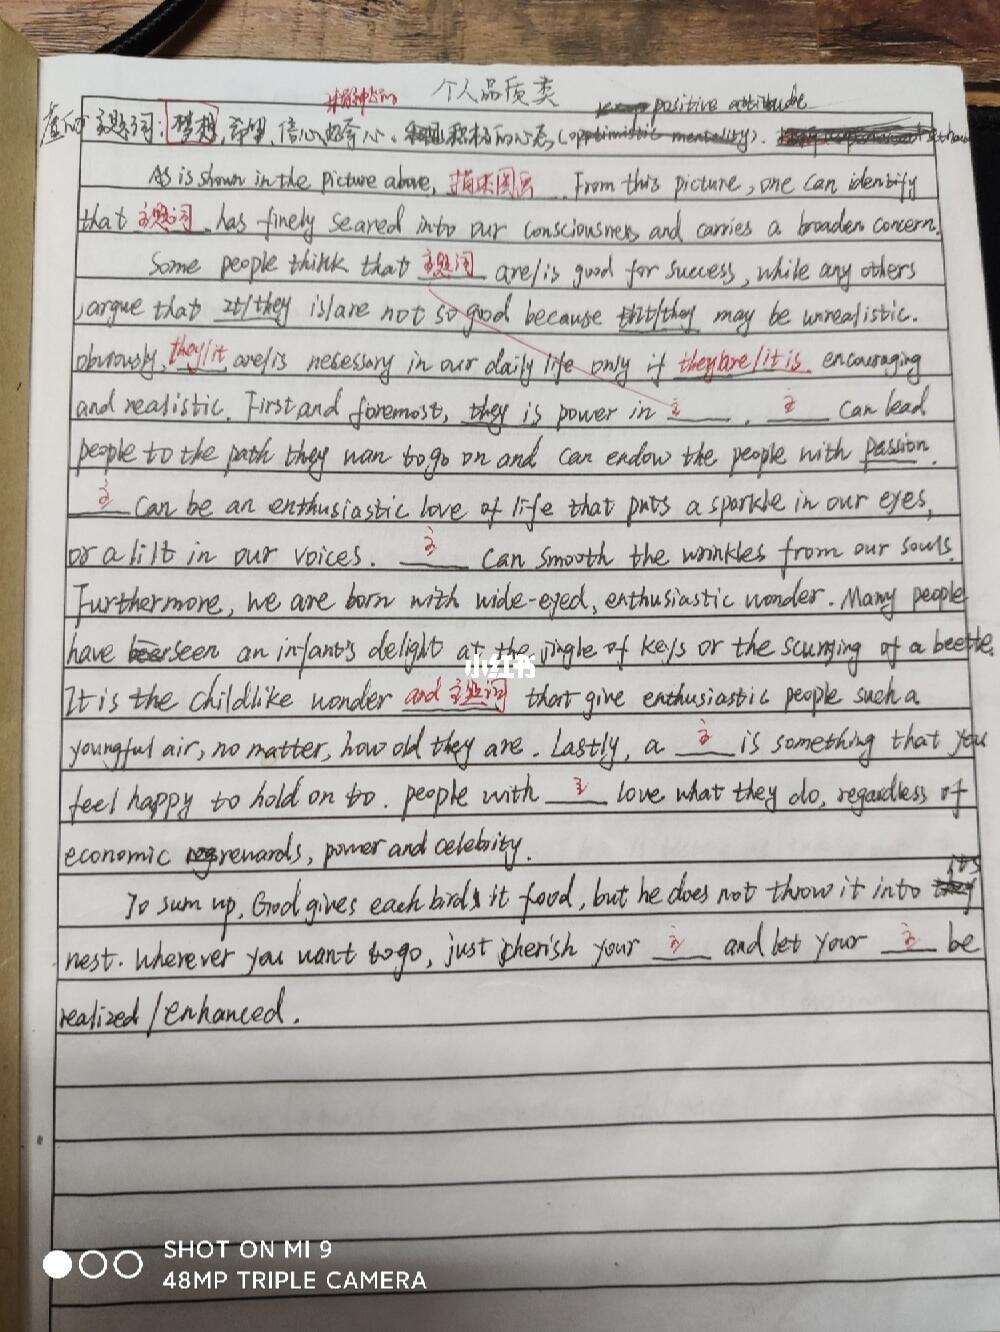 个人品质类
精神上的
positive attitude
主题词:梦想,希望,信心,好奇心,积极的心态,(optimistic mentality).
As is shown in the picture above, 描述图画. From this picture, one can identify
that 主题词 has finely seared into our consciousness and carries a broaden concern.
Some people think that 主题词 are/is good for success, while any others
argue that it/they is/are not so good because that/they may be unrealistic.
obviously, they/it are/is necessary in our daily life only if they are/it is encouraging
and realistic. First and foremost, they is power in 主. 主 can lead
people to the path they wan to go on and can endow the people with passion.
主 can be an enthusiastic love of life that puts a sparkle in our eyes,
or a lilt in our voices. 主 can smooth the wrinkles from our souls.
Furthermore, we are born with wide-eyed, enthusiastic wonder. Many people
have seen an infant's delight at the jingle of keys or the scurrying of a beetle.
It is the childlike wonder and 主题词 that give enthusiastic people such a
youngful air, no matter, how old they are. Lastly, a 主 is something that you
feel happy to hold on to. people with 主 love what they do, regardless of
economic rewards, power and celebrity.
To sum up, God gives each birds it food, but he does not throw it into its
nest. Wherever you want to go, just cherish your 主 and let your 主 be
realized/enhanced.
小红书
SHOT ON MI 9
48MP TRIPLE CAMERA